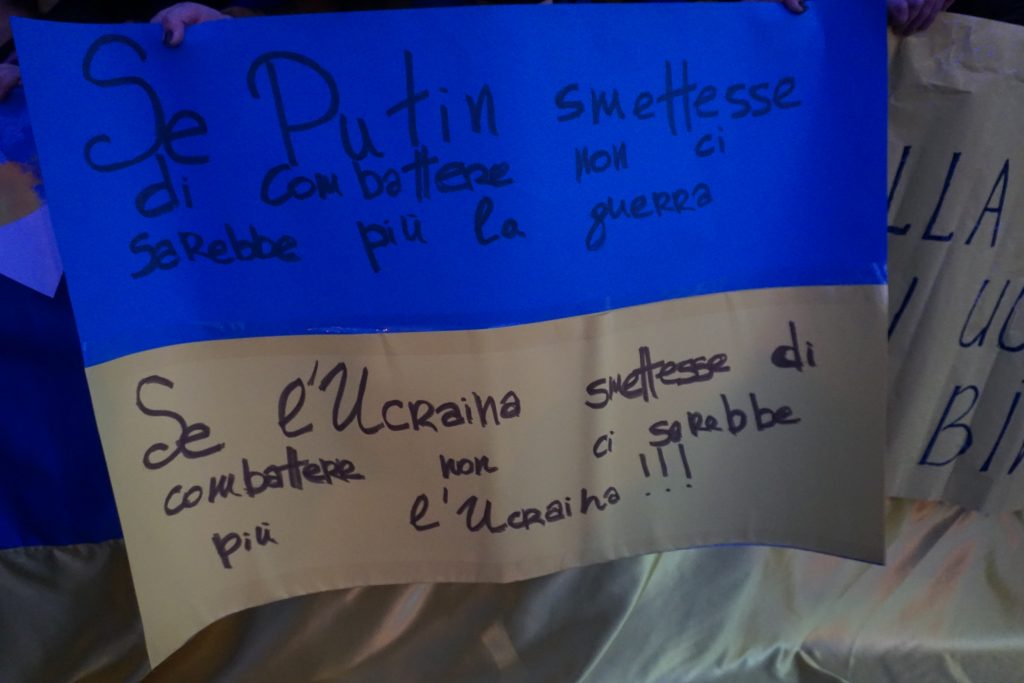 Se Putin smettesse
di combattere non ci
sarebbe più la guerra
Se l'Ucraina smettesse di
combattere non ci sarebbe
più l'Ucraina !!!
LLA
UC
BI